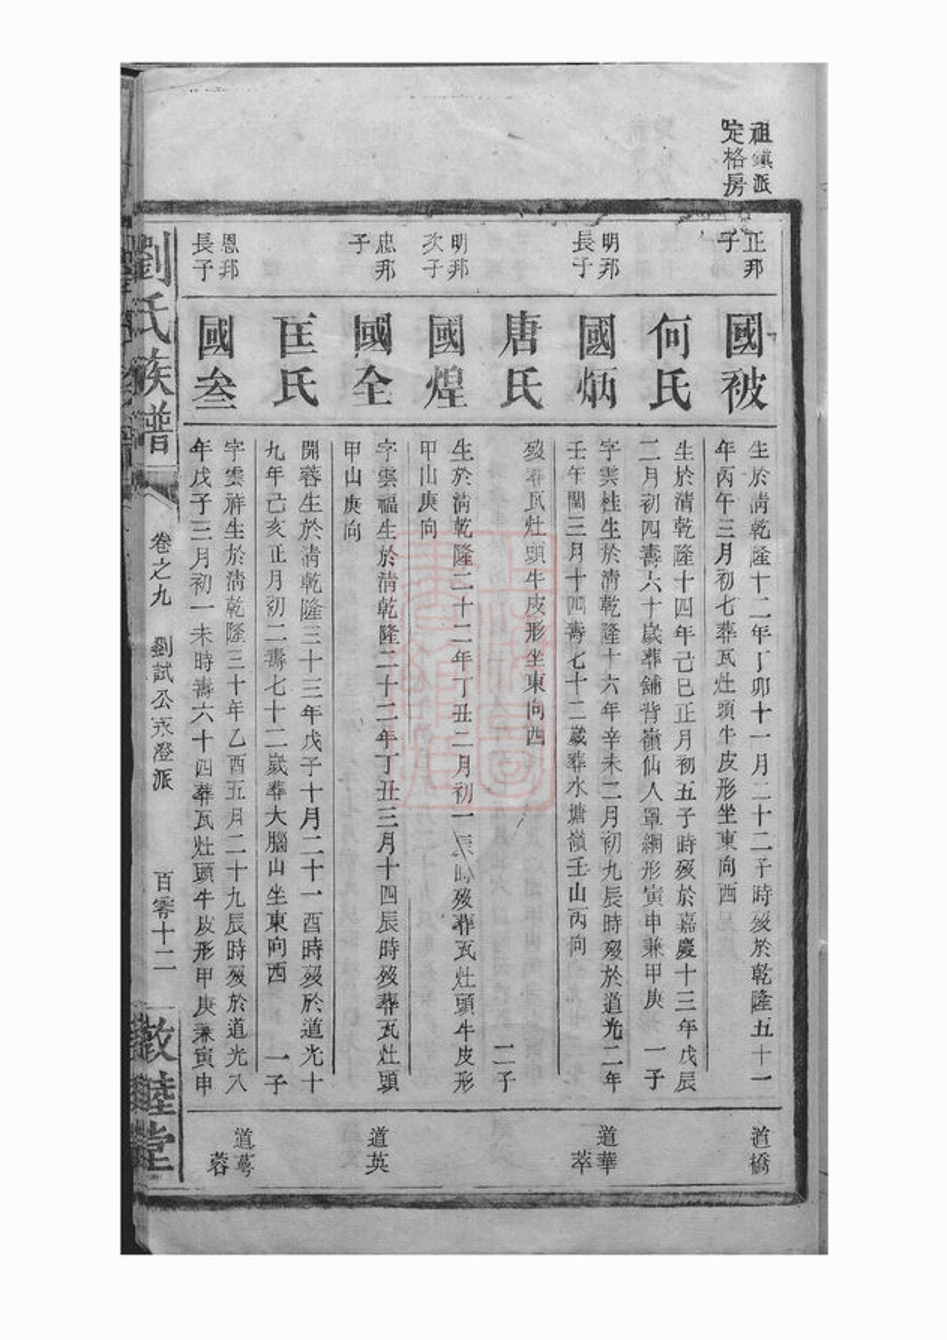 祖鎮派
定格房
正邦
子
國被
生於清乾隆十二年丁卯十一月二十二子時歿於乾隆五十一
年丙午三月初七葬瓦灶頭牛皮形坐東向西
道橋
何氏
生於清乾隆十四年己巳正月初五子時歿於嘉慶十三年戊辰
二月初四壽六十歲葬舖背嶺仙人罩網形寅申兼甲庚 一子
明邦
長子
國炳
字雲桂生於清乾隆十六年辛未二月初九辰時歿於道光二年
壬午閏三月十四壽七十二歲葬水塘嶺壬山丙向
道華
萃
唐氏
歿葬瓦灶頭牛皮形坐東向西 二子
明邦
次子
國煌
生於清乾隆二十二年丁丑二月初一辰時歿葬瓦灶頭牛皮形
甲山庚向
忠邦
子
國全
字雲福生於清乾隆二十二年丁丑三月十四辰時歿葬瓦灶頭
甲山庚向
道英
匡氏
開蓉生於清乾隆三十三年戊子十月二十一酉時歿於道光十
九年己亥正月初二壽七十二歲葬大腦山坐東向西 一子
恩邦
長子
國叁
字雲祥生於清乾隆三十年乙酉五月二十九辰時歿於道光八
年戊子三月初一未時壽六十四葬瓦灶頭牛皮形甲庚兼寅申
道蕚
蓉
劉氏族譜
卷之九
劉試公永澄派
百零十二
敦睦堂